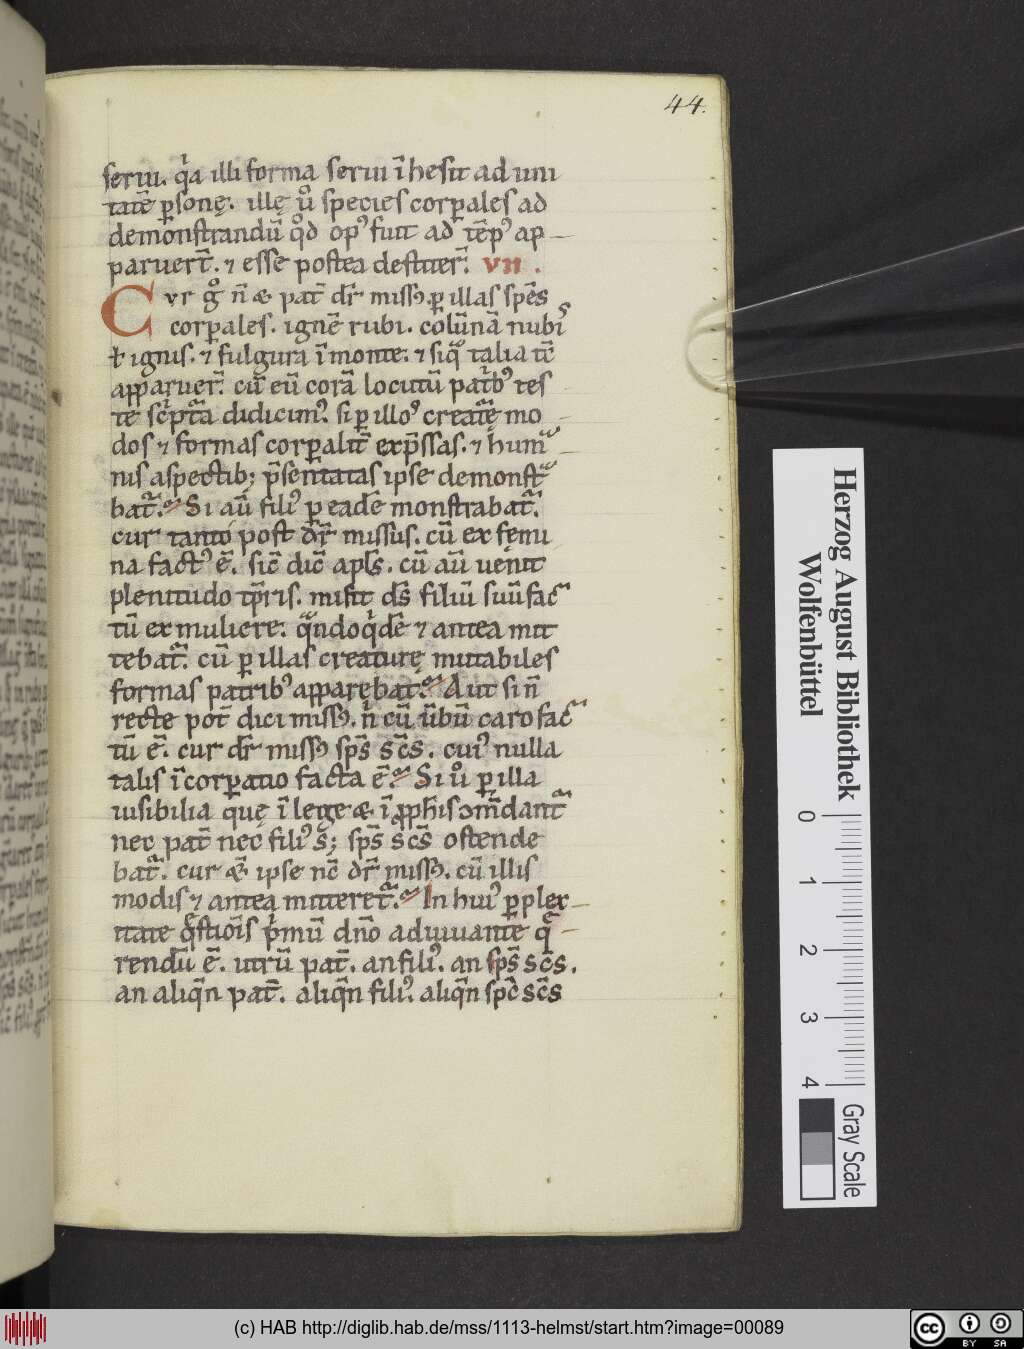 44.
seruı. q̇a illi forma seruı ı̄hesit ad uni
tatē p̱sonę. illę ů species corp̱ales ad
demōnstrandū qͦd opꝰ fuit ad tēpꝰ ap
paruer̄t. ⁊ esse postea destiter̄. VII.
Cvr gͦ n̄ & pat̄ dr̄ missꝰ. p̱ illas spēs
corp̱ales. ignē rubi. colūnā nubiˢ
ł ignis. ⁊ fulgura ı̄ monte. ⁊ siqͣ talia tc̄
apparuer̄. cū eū corā locutū patͥbꝰ tes
te scͥptͣa didicimꝰ. si p̱ illoˢ creatͣę mo
dos ⁊ formas corp̱alit̄ exp̄ssas. ⁊ humͣ
nis aspectib; p̄sentatas ipse demonstͣ
bat᷑. Si aū filiꝰ p̱ eadē monstrabat᷑.
cur tanto post dr̄ missus. cū ex femi
na factꝰ ē. sic̄ dic̄ apls̄. cū aū uenit
plenitudo tp̄ris. misit ds̄ filiū suū fac̄
tū ex muliere. qͣndoqͥdē ⁊ antea mit
tebat᷑. cū p̱ illas creaturę mutabiles
formas patribꝰ apparębat. Aut si n̄
recte pot̄ dici missꝰ. nͥ cū ūbū caro fac̄
tū ē. cur dr̄ missꝰ sps̄ sc̄s. cuiꝰ nulla
talis ı̄corp̱atio facta ē. Si ů p̱ illa
uisibilia quę ı̄ lege & ı̄ ꝓph̄is ↄm̄dant᷑
nec pat̄ nec filiꝰ s; sps̄ sc̄s ostende
bat᷑. cur & ipse nc̄ dr̄ missꝰ. cū illis
modis ⁊ antea mitteret᷑. In huiꝰ p̱plex
itate qͣ̄stiois p̄mū dn̄o adiuuante q̄
rendū ē. utrū pat̄. an filiꝰ. an sps̄ sc̄s.
an aliqn̄ pat̄. aliqn̄ filiꝰ. aliqn̄ spc̄ sc̄s
Herzog August Bibliothek
Wolfenbüttel
0 1 2 3 4
Gray Scale
(c) HAB http://diglib.hab.de/mss/1113-helmst/start.htm?image=00089
cc BY SA